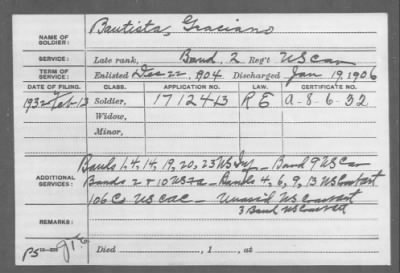 NAME OF SOLDIER: Bautista, Graciano
SERVICE: Late rank, Band, 2 Reg't US Cav
TERM OF SERVICE: Enlisted Dec 22, 1904 Discharged Jan 19, 1906
DATE OF FILING. CLASS. APPLICATION NO. LAW. CERTIFICATE NO.
1932 Feb 13 Soldier, 1712413 R E A-8-6-32
Widow,
Minor,
Bands 1, 4, 14, 19, 20, 23 US Inf — Band 9 US Cav
ADDITIONAL SERVICES: Bands 2 & 10 — Bands 4, 6, 9, 13 US Coast Art
106 Co US CAC — US Coast Art
3 Band US Coast Art
REMARKS:
Died , 1 , at